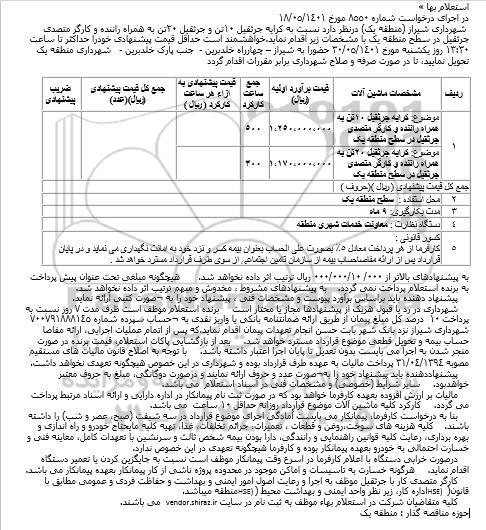 استعلام بها »
در اجرای درخواست شماره ۸۵۵۰ مورخ ۱۸/۰۵/۱۴۰۱
شهرداری شیراز (منطقه یک) درنظر دارد نسبت به کرایه جرثقیل ۱۰تن و جرثقیل ۲۰تن به همراه راننده و کارگر متصدی
جرثقیل در سطح منطقه یک با مشخصات زیر اقدام نماید.خواهشمند است حداقل قیمت پیشنهادی خودرا حداکثر تا ساعت
۱۳:۳۰ روز یکشنبه مورخ ۳۰/۰۵/۱۴۰۱ حضورا به شیراز – چهارراه خلدبرین - جنب پارک خلدبرین - شهرداری منطقه یک
تحویل نمایید، تا در صورت صرفه و صلاح شهرداری برابر مقررات اقدام گردد
ردیف
مشخصات ماشین آلات
قیمت برآورد اولیه (ریال)
جمع ساعت کارکرد
قیمت پیشنهادی به ازاء هر ساعت کارکرد (ریال)
جمع کل قیمت پیشنهادی (ریال)(عدد)
ضریب پیشنهادی
۱
موضوع: کرایه جرثقیل ۱۰تن به
همراه راننده و کارگر متصدی
جرثقیل در سطح منطقه یک
۱،۲۵۰،۰۰۰،۰۰۰
۵۰۰
موضوع: کرایه جرثقیل ۲۰تن به
همراه راننده و کارگر متصدی
جرثقیل در سطح منطقه یک
۱،۱۷۰،۰۰۰،۰۰۰
۳۰۰
جمع کل قیمت پیشنهادی (ریال )(حروف )
۲ محل استفاده : سطح منطقه یک
۳ مدت بکارگیری: ۹ ماه
۴ دستگاه نظارت : معاونت خدمات شهری منطقه
۵ کسور قانونی :
کارفرما از هر پرداخت معادل ۵٪ بصورت علی الحساب بعنوان بیمه کسر و نزد خود به امانت نگهداری می نماید و در پایان
قرارداد پس از ارائه مفاصاحساب بیمه از سازمان تامین اجتماعی از سوی طرف قرارداد مسترد خواهد شد .
به پیشنهادهای بالاتر از ۰۰۰/۰۰۰/۱۰/۰۰۰ ریال ترتیب اثر داده نخواهد شد. هیچگونه مبلغی تحت عنوان پیش پرداخت
به برنده استعلام پرداخت نمی گردد. به پیشنهادهای مشروط ، مخدوش و مبهم ترتیب اثر داده نخواهد شد.
پیشنهاد دهنده باید براساس برآورد پیوست و مشخصات فنی ، پیشنهاد خود را به صورت کتبی ارائه نماید.
شهرداری در رد یا قبول هریک از پیشنهادها مجاز یا مختار است برنده استعلام موظف است ظرف مدت ۷ روز نسبت به
پرداخت ۱۰ درصد کل مبلغ پیمان از طریق ارائه ضمانتنامه بانکی یا واریز نقدی به حساب سپرده شماره ۷۰۰۷۹۱۸۸۸۱۴۵
شهرداری شیراز نزد بانک شهر بابت حسن انجام تعهدات پیمان اقدام نماید.که پس از اتمام عملیات اجرایی، ارائه مفاصا
حساب بیمه و تحویل قطعی موضوع قرارداد مسترد خواهد شد. بعد از بازگشایی پاکات استعلام، قیمت برنده در صورت
منجر شدن به اجرا می بایست بدون تعدیل تا پایان اجرا اعتبار داشته باشد. با توجه به اصلاح قانون مالیات های مستقیم
مصوبه ۳۱/۰۴/۱۳۹۴ پرداخت مالیات به عهده طرف قرارداد بوده و شهرداری در این خصوص هیچگونه تعهدی نخواهد داشت.
پیشنهاددهنده باید پیشنهاد خود را به صورت عدد و حروف ارائه نمایند و درصورت دوگانگی، مبلغ به حروف معتبر
خواهدبود. سایر شرایط (خصوصی) و مشخصات فنی در اسناد استعلام می باشد.
مالیات بر ارزش افزوده بعهده کارفرما خواهد بود که در صورت ثبت نام پیمانکار در اداره دارایی و ارائه اسناد مرتبط پرداخت
می گردد. کارکرد کلیه ماشین آلات موضوع قرارداد روزانه حداقل ۱۰ ساعت می باشد.
بنا به درخواست کارفرما، پیمانکار می بایست آمادگی اجرای موضوع قرارداد در سه شیفت (صبح، عصر و شب) را داشته
باشند. کلیه هزینه های سوخت،روغن و قطعات ، تعمیرات، جرائم تخلفات، غذا، تهیه کلیه مایحتاج خودرو و راه اندازی و
بهره برداری، رعایت کلیه قوانین راهنمایی و رانندگی، دارا بودن بیمه شخص ثالث و سرنشین با تعهدات کامل، معاینه فنی و
خسارت احتمالی به خودرو بعهده پیمانکار بوده و کارفرما هیچگونه تعهدی در این خصوص ندارد.
درصورت خرابی دستگاه با اعلام کارفرما در اسرع وقت پیمانکار موظف است نسبت به جایگزین کردن یا تعمیر دستگاه
اقدام نماید. هرگونه خسارت به تاسیسات و اماکن موجود در محدوده پروژه ناشی از کار پیمانکار بعهده پیمانکار می باشد.
کارگر متصدی کار با جرثقیل موظف به اجرا و رعایت اصول امور ایمنی و بهداشت و حفاظت فردی و عمومی مطابق با
قانون( HSE)اداره کار، زیر نظر واحد ایمنی و بهداشت محیط ( HSE)منطقه میباشد.
کلیه متقاضیان شرکت در استعلام بهاء موظف به ثبت نام در سایت vendor.shiraz.ir می باشند.
حوزه مناقصه گذار : منطقه یک